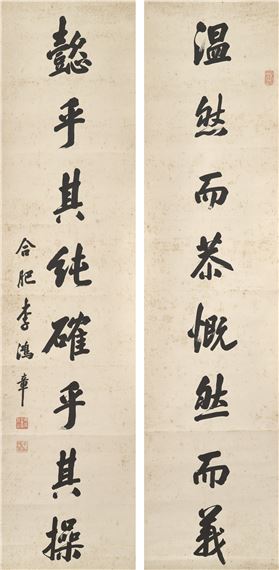 温然而恭慨然而義
懿乎其纯確乎其操
合肥李鴻章